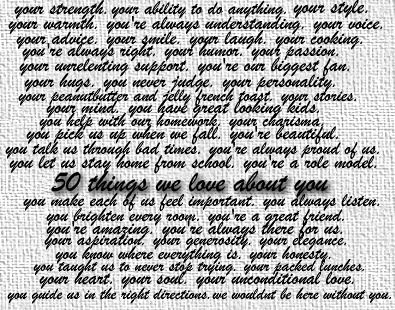 your strength. your ability to do anything. your style.
your warmth. you're always understanding. your voice.
your advice. your smile. your laugh. your cooking.
you're always right. your humor. your passion.
your unrelenting support. you're our biggest fan.
your hugs. you never judge. your personality.
your peanutbutter and jelly french toast. your stories.
your mind. you have great looking kids.
you help with our homework. your charisma.
you pick us up when we fall. you're beautiful.
you talk us through bad times. you're always proud of us.
you let us stay home from school. you're a role model.
50 things we love about you
you make each of us feel important. you always listen.
you brighten every room. you're a great friend.
you're amazing. you're always there for us.
your aspiration. your generosity. your elegance.
you know where everything is. your honesty.
you taught us to never stop trying. your packed lunches.
your heart. your soul. your unconditional love.
you guide us in the right directions.we wouldnt be here without you.